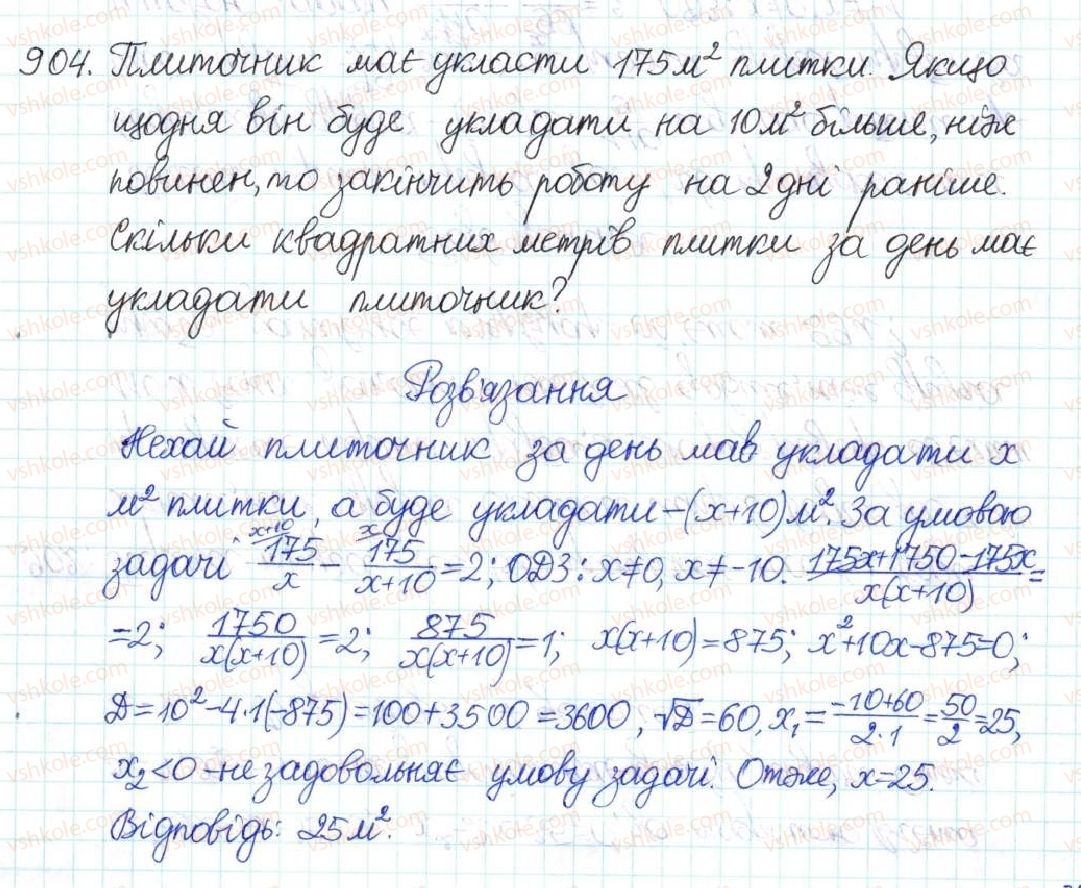 904. Плиточник має укласти 175 м² плитки. Якщо
щодня він буде укладати на 10 м² більше, ніж
повинен, то закінчить роботу на 2 дні раніше.
Скільки квадратних метрів плитки за день має
укладати плиточник?
Розв'язання
Нехай плиточник за день мав укладати x
м² плитки, а буде укладати – (x+10) м². За умовою
задачі ˣ⁺¹⁰⁄175/x − ˣ⁄175/(x+10) = 2; ОДЗ: x≠0, x≠-10. (175x+1750-175x)/(x(x+10)) =
=2; 1750/(x(x+10)) = 2; 875/(x(x+10)) = 1; x(x+10)=875; x²+10x-875=0;
D=10²-4·1(-875)=100+3500=3600, √D=60, x₁=(-10+60)/(2·1)=50/2=25,
x₂<0 – не задовольняє умову задачі. Отже, x=25.
Відповідь: 25 м².
vshkole.com